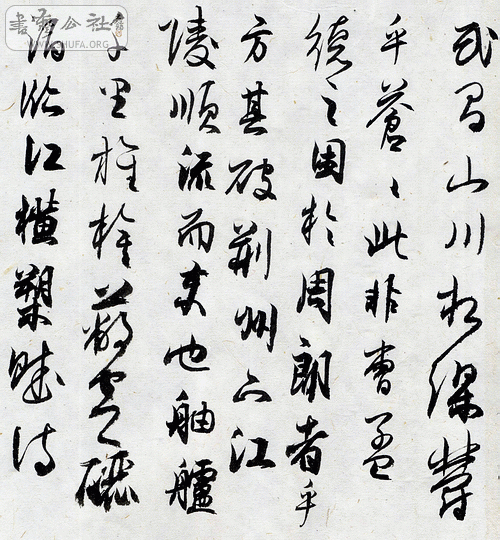 書法公社
WWW.SHUFA.ORG
武昌山川相繆鬱
乎蒼〻此非曹孟
德之困於周郎者乎
方其破荊州下江
陵順流而東也舳艫
千里旌旗蔽空釃
酒臨江橫槊賦詩